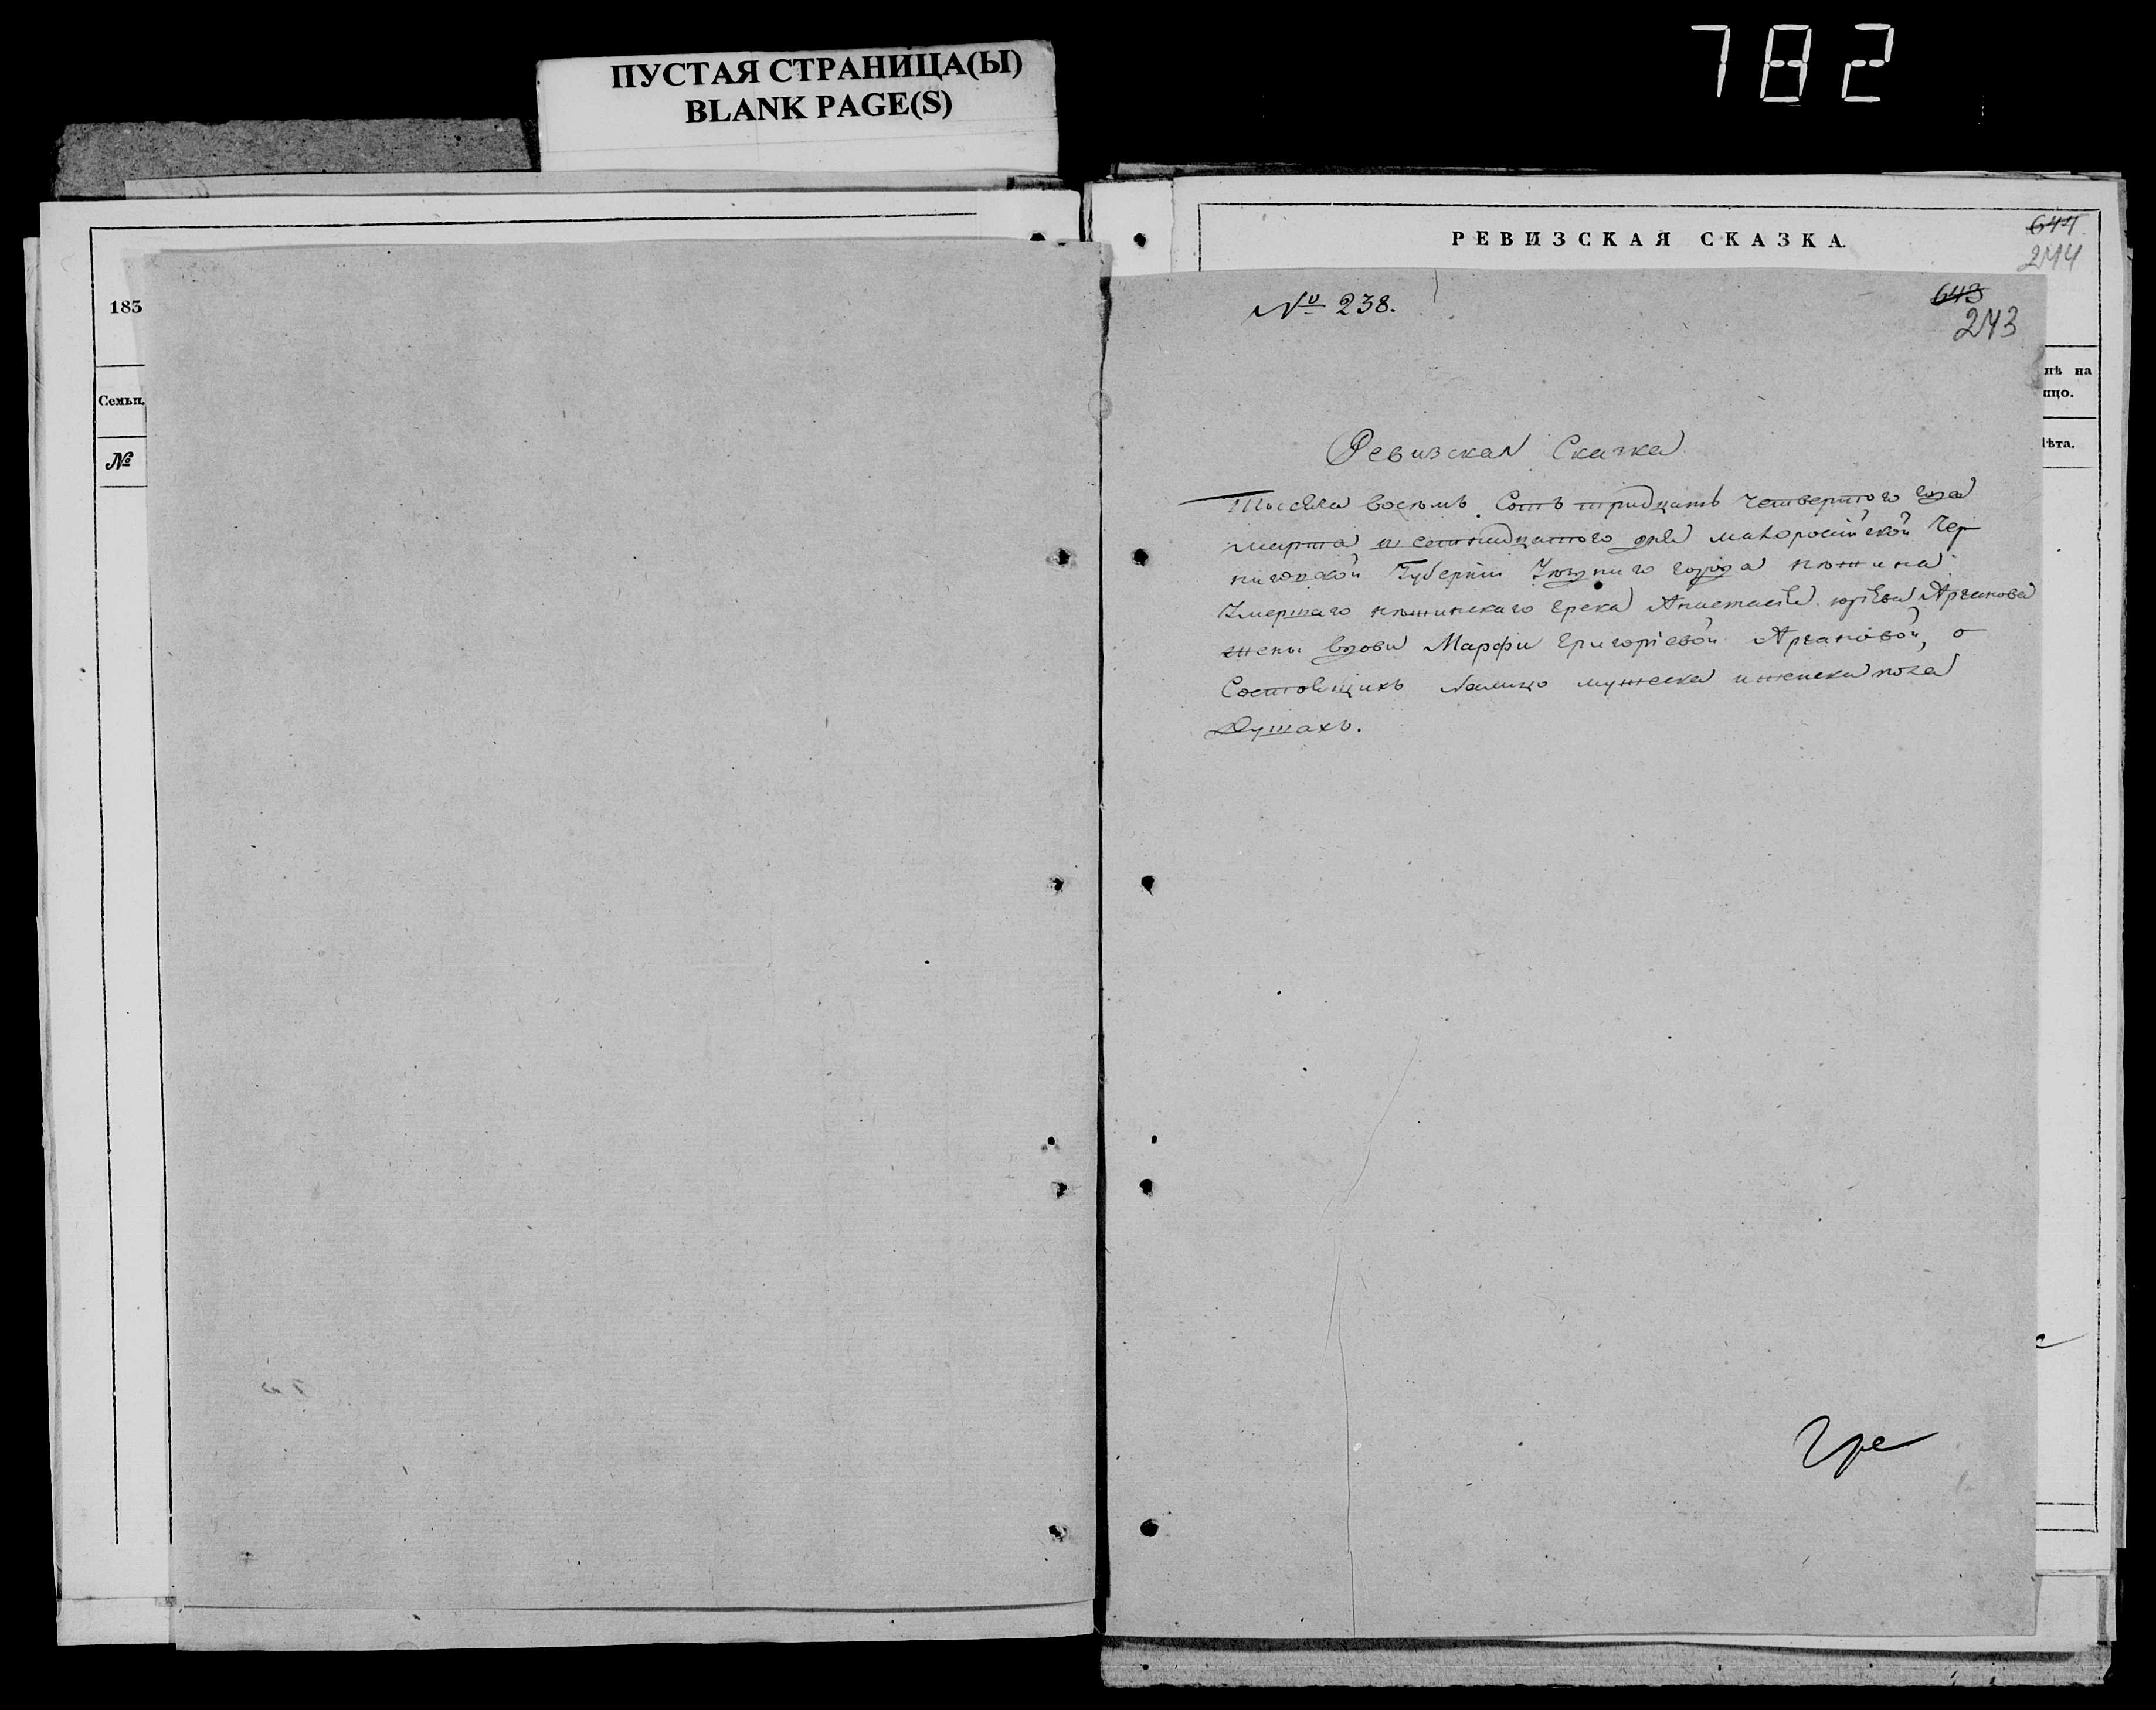 782
ПУСТАЯ СТРАНИЦА(Ы)
BLANK PAGE(S)
183
Семьи.
№
РЕВИЗСКАЯ СКАЗКА.
644
244
№ 238.
643
243
нѣ на
ицо.
лѣта.
Ревизская Сказка
Тысяча восемь Сотъ тридцать четвертого года
марта дня малоросiйской Чер
ниговской Губернiи города нѣжина
Умершаго нѣжинскаго грека Анастасiя юрiева Арханова
жены вдовы Марфы григорiевой Архановой, о
Состоящихъ налицо мужеска и женска пола
Душахъ.
Гре